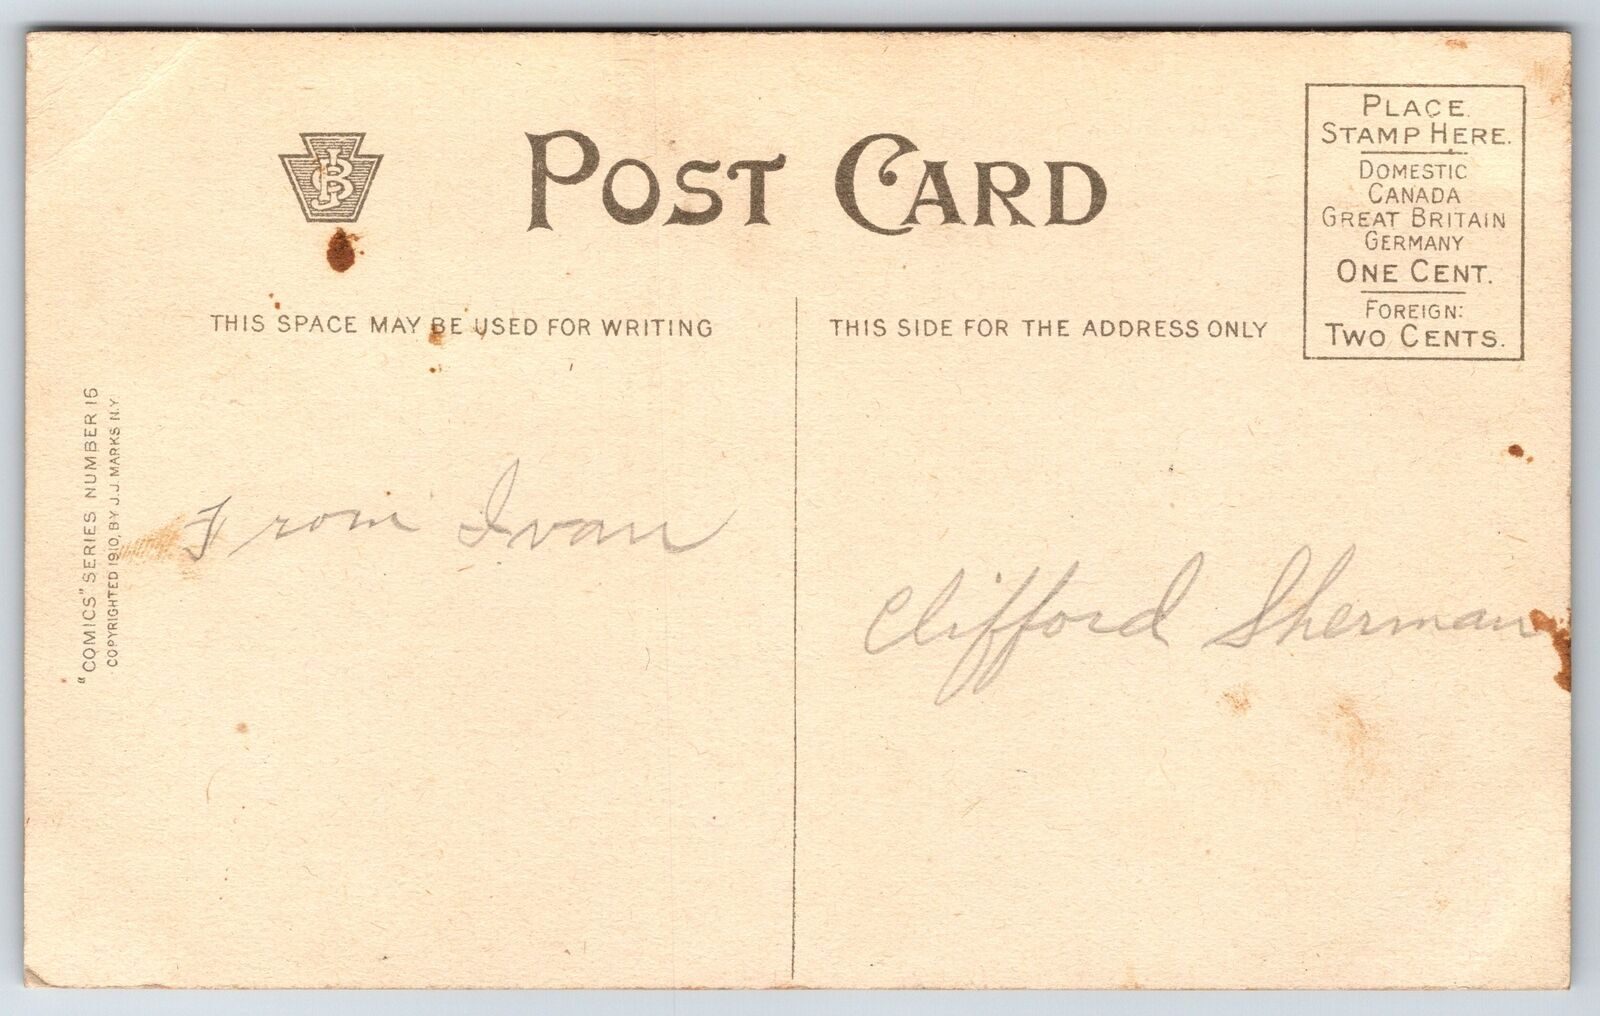 POST CARD
PLACE
STAMP HERE.
DOMESTIC
CANADA
GREAT BRITAIN
GERMANY
ONE CENT.
FOREIGN:
TWO CENTS.
THIS SPACE MAY BE USED FOR WRITING
THIS SIDE FOR THE ADDRESS ONLY
"COMICS" SERIES NUMBER 16
COPYRIGHTED 1910, BY J.J. MARKS N.Y.
From Ivan
Clifford Sherman